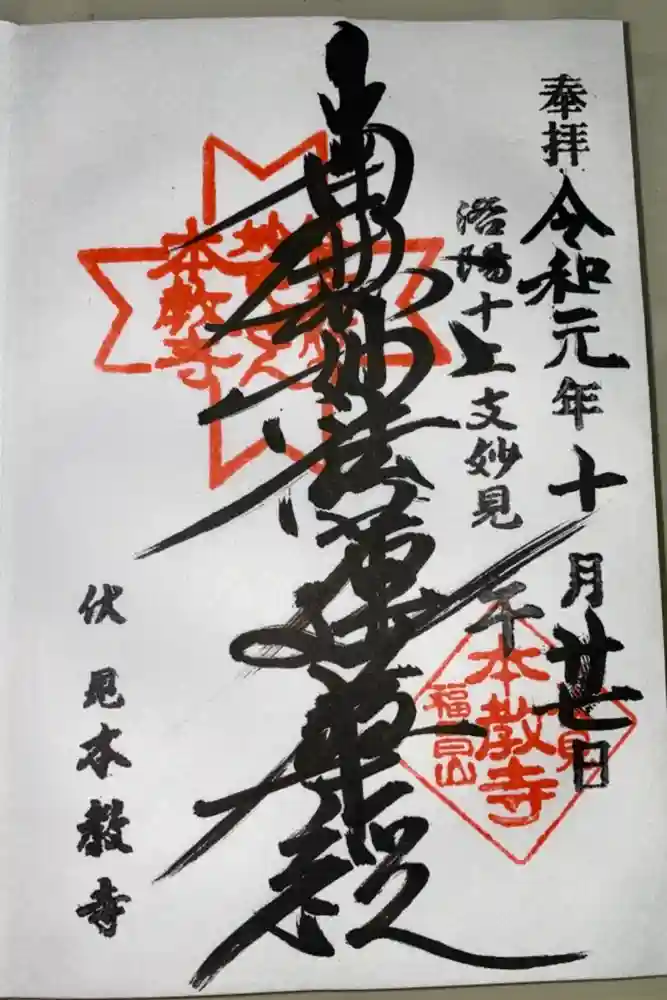 奉拝 令和元年十月廿七日
洛陽十二支妙見 午
南無妙法蓮華経
伏見本教寺
本教寺
本教寺
福昌山